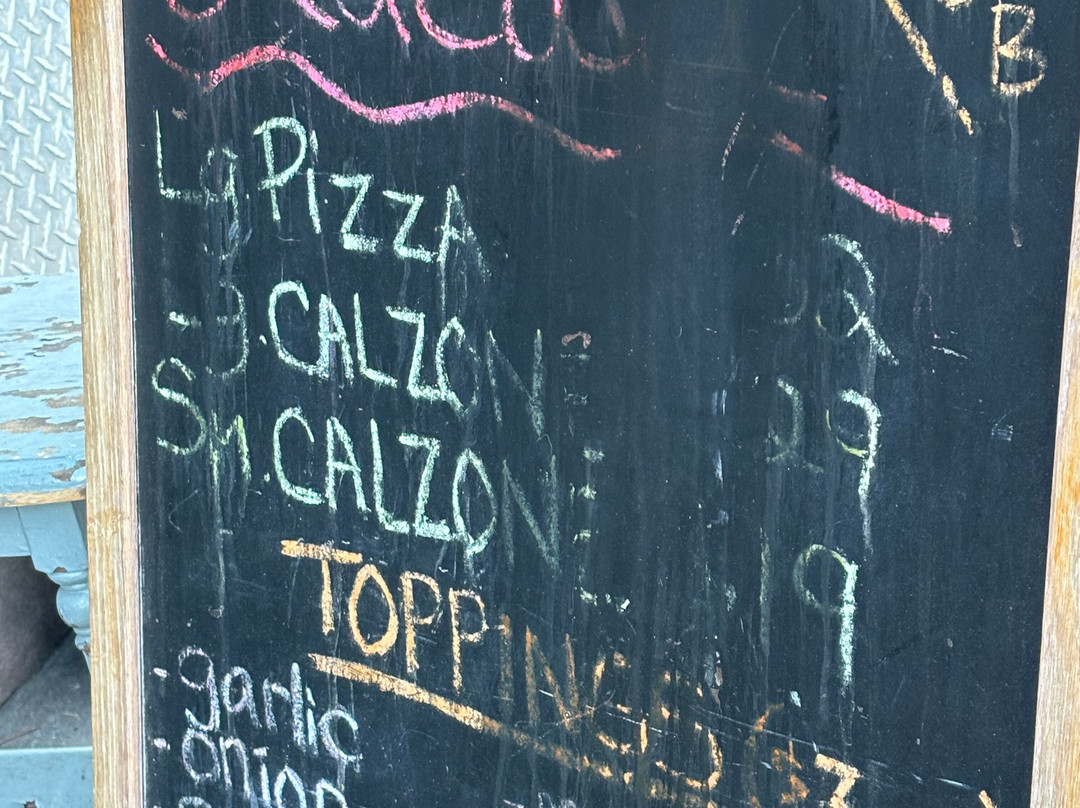 B
Lg. PIZZA 22
Lg. CALZONE 29
Sm. CALZONE 19
TOPPINGS
-garlic
-onion